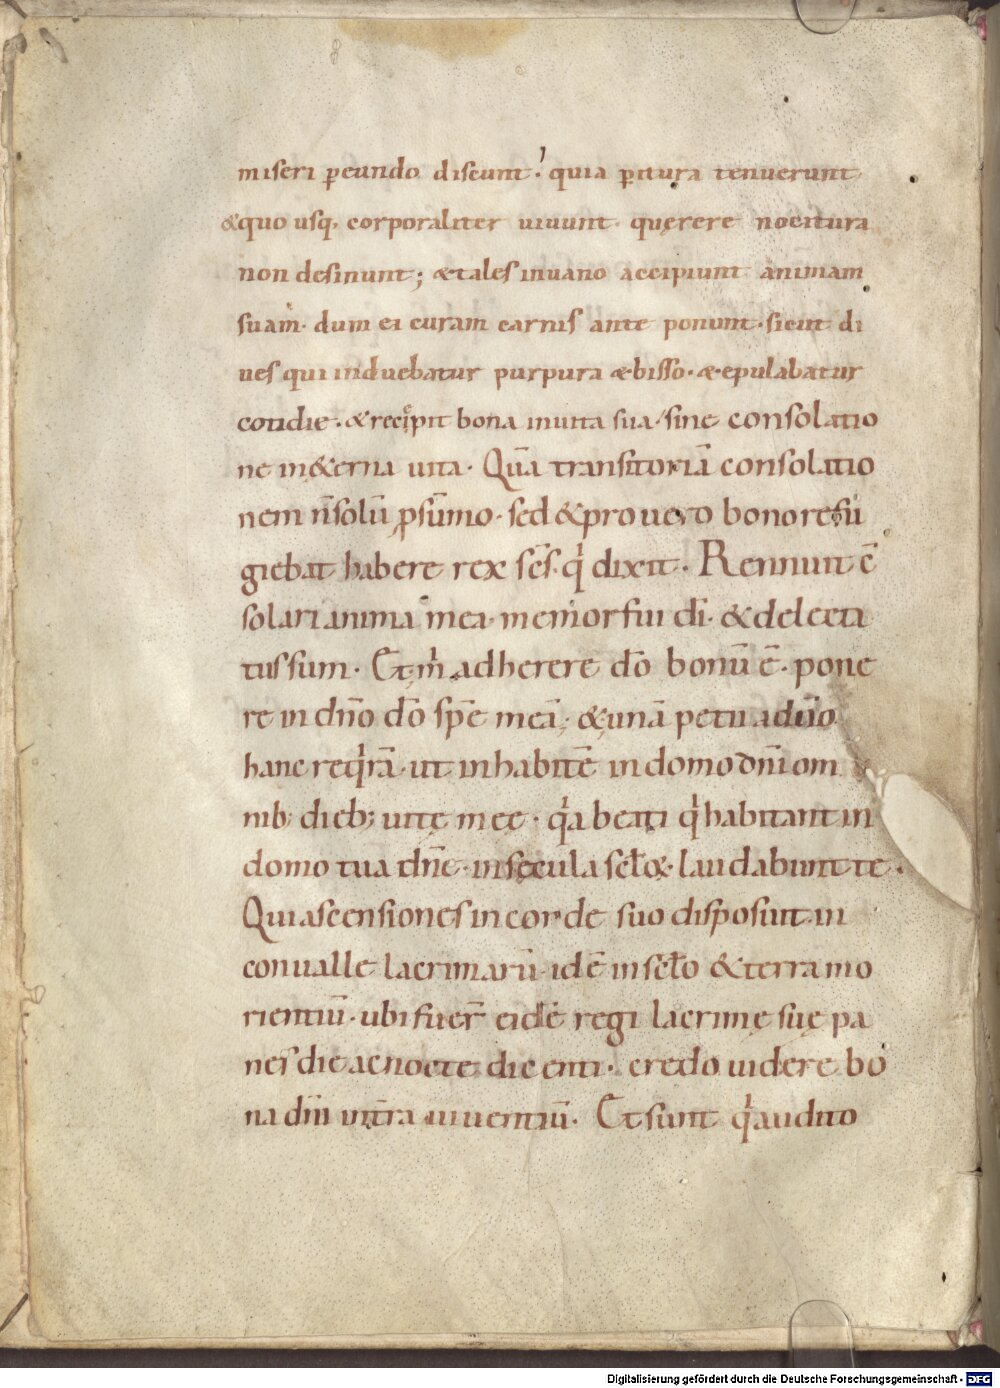 miseri ꝑeundo discunt· quia ꝑitura tenuerunt
&quo usq; corporaliter uiuunt· querere nocitura
non desinunt; ætales inuano accipiunt animam
suam· dum ei curam carnis ante ponunt· sicut di
ues qui induebatur purpura æ·bisso· æ·epulabatur
cotidie· & recępit bona inuita sua· sine consolatio
ne inęterna uita· Quā transitoriā consolatio
nem n̄ solū p̱sūmo· sed & pro uero bono resū
giebat habere rex sc̄s· qͥ dixit· Rennuit c̄
solari anima mea· memor fui dī· & delecta
tus sum· Et mͥ adherere dō bonū ē· pone
re in dn̄o dō spē meā· & unā petii adn̄o
hanc reqͥrā· ut inhabitē in domo dn̄i om
nib; dieb; uitę meę· qͥa beati qͥ habitant in
domo tua dn̄e· insęcula sclo℞· laudabunt te·
Qui ascensiones in corde suo disposuit in
conualle lacrimarū· id ē in scl̄o & terra mo
rientiū· ubi fuer̄ eidē regi lacrimę suę pa
nes die ac nocte dicenti· credo uidere bo
na dn̄i intra uiuentiū· Et sunt qͥ audito
Digitalisierung gefördert durch die Deutsche Forschungsgemeinschaft · DFG